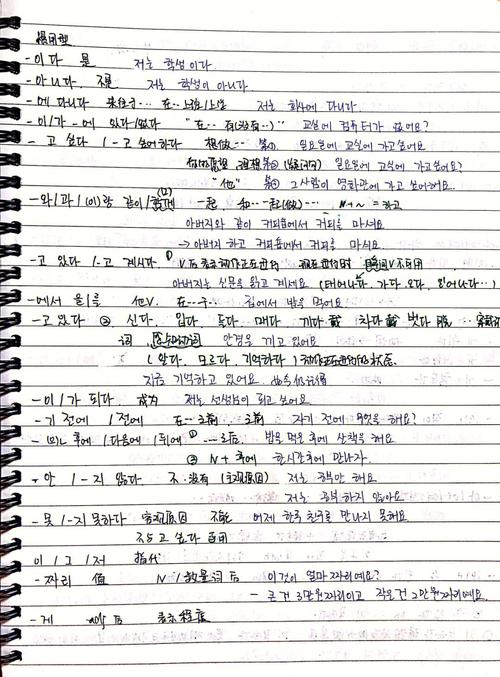 惯用型
-이다 是 저는 학생이다.
-아니다. 不是 저는 학생이 아니다.
-에 다니다 来往于… 在…上班/上学 저는 회사에 다니다.
-이/가 -에 있다/없다 "在…有(没有)…" 교실에 컴퓨터가 없어요?
-고 싶다 / -고 싶어하다 想做 第一 일요일에 교실에 가고싶어요
第二(疑问句) 일요일에 교실에 가고싶어요?
"他" 第三 그사람이 영화관에 가고 싶어해요.
-와/과/(이)랑 같이/함께 一起 和…一起(做)… N+N =하고
아버지와 같이 커피숍에서 커피를 마셔요
→ 아버지 하고 커피숍에서 커피를 마셔요.
-고 있다 /-고 계시다 ① V后表示动作正在进行 现在进行时 瞬间V不可用
아버지는 신문을 읽고 계세요. (태어나다. 가다. 오다. 잃어나다…)
-에서 을/를 他V. 在…于. 집에서 밥을 먹어요?
-고 있다 ② 신다. 입다. 들다. 매다 끼다 戴 차다 戴 벗다 脱
안경을 끼고 있어요
(알다. 모르다. 기억하다)
지금 기억하고 있어요.
-이/가 되다 成为 저는 선생님이 되고 싶어요.
-기 전에 /전에 在…之前. 之前 자기 전에 무엇을 해요?
-(으)ㄴ 후에 /다음에 /뒤에 ① …之后. 밥을 먹은 후에 산책을 해요
② N+후에 한시간후에 만나자.
-안 /-지 않다 不. 没有 (主观原因) 저는 공부 안 해요.
저는 공부하지 않아요
-못 /-지 못하다 客观原因 不能 어제 한국 친구를 만나지 못해요
不与 고 싶다 连用
이/그/저 指代
-짜리 值 N/数量词后 이것이 얼마짜리예요?
- 큰 건 3만원짜리이고 작은 건 2만원짜리예요.
-게 adj后 表示程度